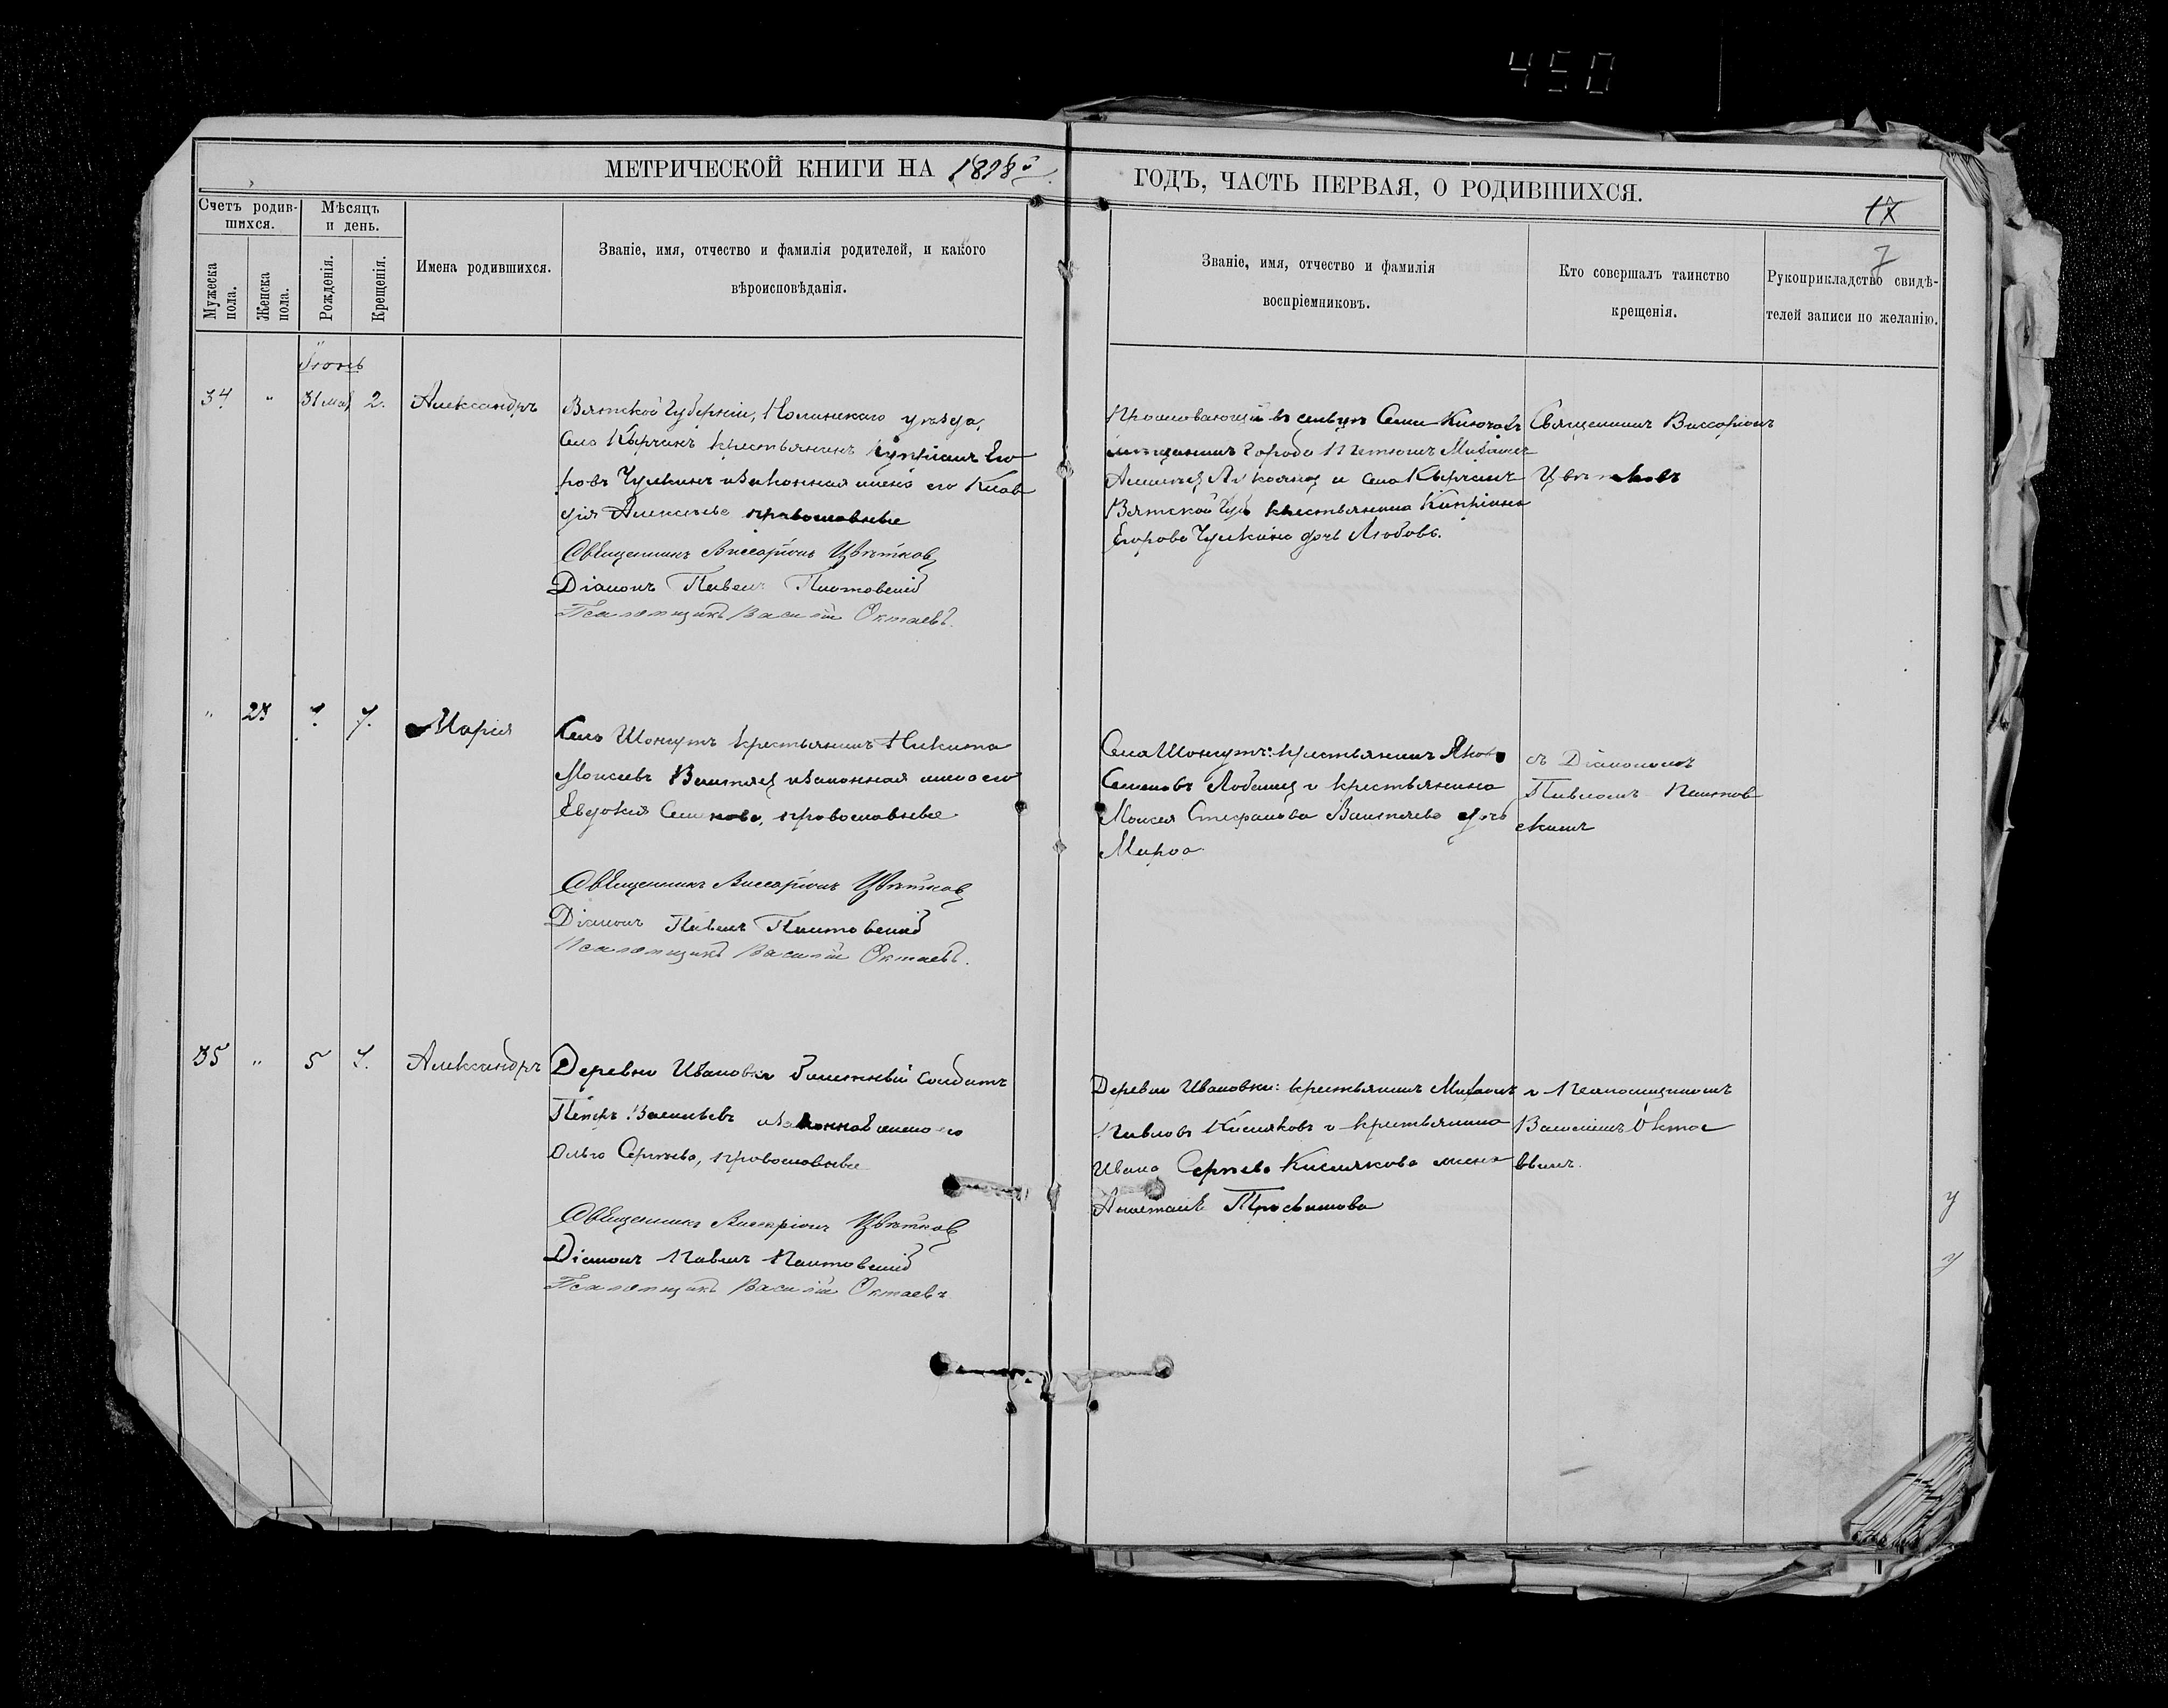 450
МЕТРИЧЕСКОЙ КНИГИ НА 1898й
ГОДЪ, ЧАСТЬ ПЕРВАЯ, О РОДИВШИХСЯ.
17
7
Счетъ родив-
шихся.
Мѣсяцъ
и день.
Мужеска
пола.
Женска
пола.
Рожденія.
Крещенія.
Имена родившихся.
Званіе, имя, отчество и фамилія родителей, и какого
вѣроисповѣданія.
Званіе, имя, отчество и фамилія
воспріемниковъ.
Кто совершалъ таинство
крещенія.
Рукоприкладство свидѣ-
телей записи по желанію.
Іюнь
34. " 31 мая 2. Александръ
Вятской Губерніи, Нолинскаго уѣзда,
села Кырчанъ крестьянинъ Кипріанъ Его
ровъ Чулкинъ и законная жена его Клав
дія Алексѣева православные
Священникъ Виссаріонъ Цвѣтковъ
Діаконъ Павелъ
Псаломщикъ Василій Октаевъ.
города Михаилъ
и села Кырчанъ
Вятской губ крестьянина Кипріана
Егорова Чулкина дочь Любовь.
Священникъ Виссаріонъ
Цвѣтковъ
" 28 7. Марія
Села Шонгутъ крестьянинъ Никита
Моисеевъ и законная жена его
Евдокія Семенова, православные
Священникъ Виссаріонъ Цвѣтковъ
Діаконъ Павелъ
Псаломщикъ Василій Октаевъ.
Села Шонгутъ: крестьянинъ Яковъ
Семеновъ и крестьянина
Моисея Стефанова дочь
съ Діакономъ
Павломъ
скимъ
35 " 5 7. Александръ
Деревни Ивановки солдатъ
Петръ Васильевъ и законная жена его
Ольга Сергѣева, православные
Священникъ Виссаріонъ Цвѣтковъ
Діаконъ Павелъ
Псаломщикъ Василій Октаевъ
Деревни Ивановки: крестьянинъ Михаилъ
Павловъ Кисляковъ и крестьянина
Ивана Сергѣева Кислякова жена
и Псаломщикомъ
Василіемъ Окта
евымъ.